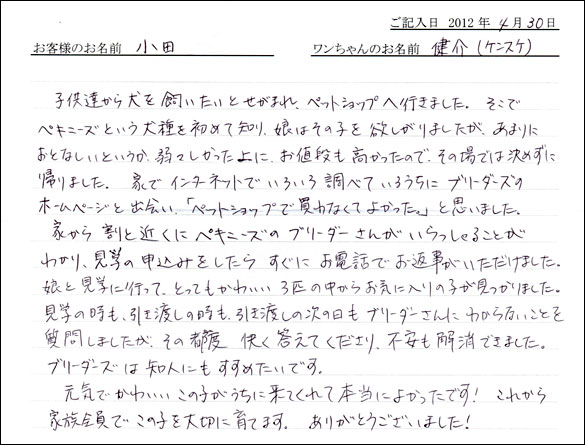 ご記入日 2012年 4月30日
お客様のお名前 小田 ワンちゃんのお名前 健介(ケンスケ)
子供達から犬を飼いたいとせがまれ、ペットショップへ行きました。そこで
ペキニーズという犬種を初めて知り、娘はその子を欲しがりましたが、あまりに
おとなしいというか、弱々しかった上に、お値段も高かったので、その場では決めずに
帰りました。家でインターネットでいろいろ調べているうちにブリーダーズの
ホームページと出会い、「ペットショップで買わなくてよかった。」と思いました。
家から割と近くにペキニーズのブリーダーさんがいらっしゃることが
わかり、見学の申込みをしたらすぐにお電話でお返事がいただけました。
娘と見学に行って、とってもかわいい3匹の中からお気に入りの子が見つかりました。
見学の時も、引き渡しの時も、引き渡しの次の日もブリーダーさんにわからないことを
質問しましたが、その都度 快く答えてくださり、不安も解消できました。
ブリーダーズは知人にもすすめたいです。
元気でかわいいこの子がうちに来てくれて本当によかったです! これから
家族全員でこの子を大切に育てます。ありがとうございました!